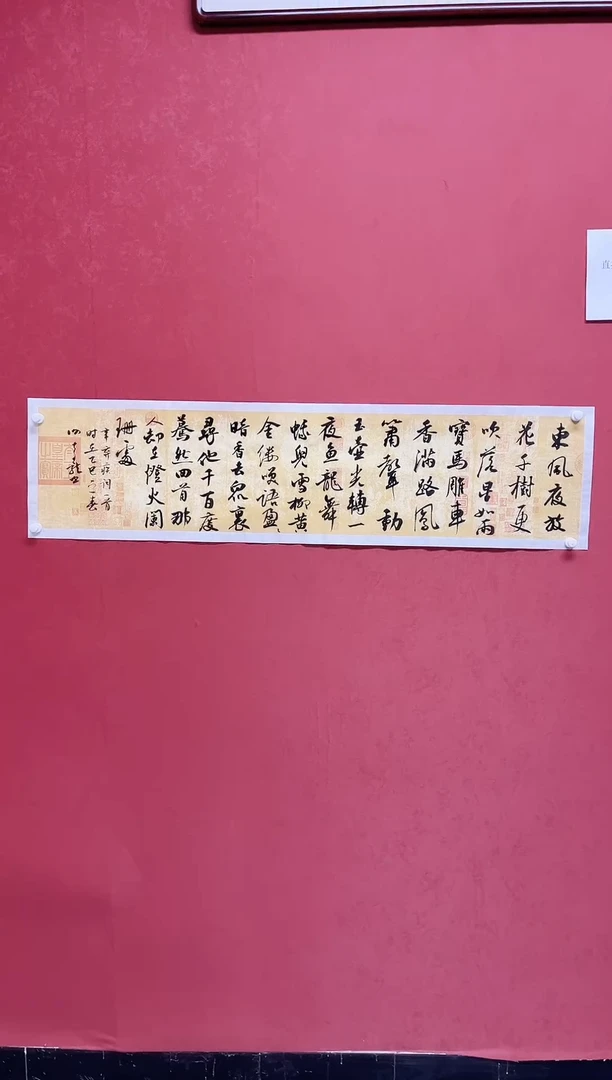 東風夜放
花千樹更
吹落星如雨
寶馬雕車
香滿路鳳
簫聲動
玉壺光轉一
夜魚龍舞
蛾兒雪柳黃
金縷笑語盈
暗香去眾裏
尋他千百度
驀然回首那
人卻在燈火闌
珊處
辛棄疾詞一首
時在乙巳之春
直